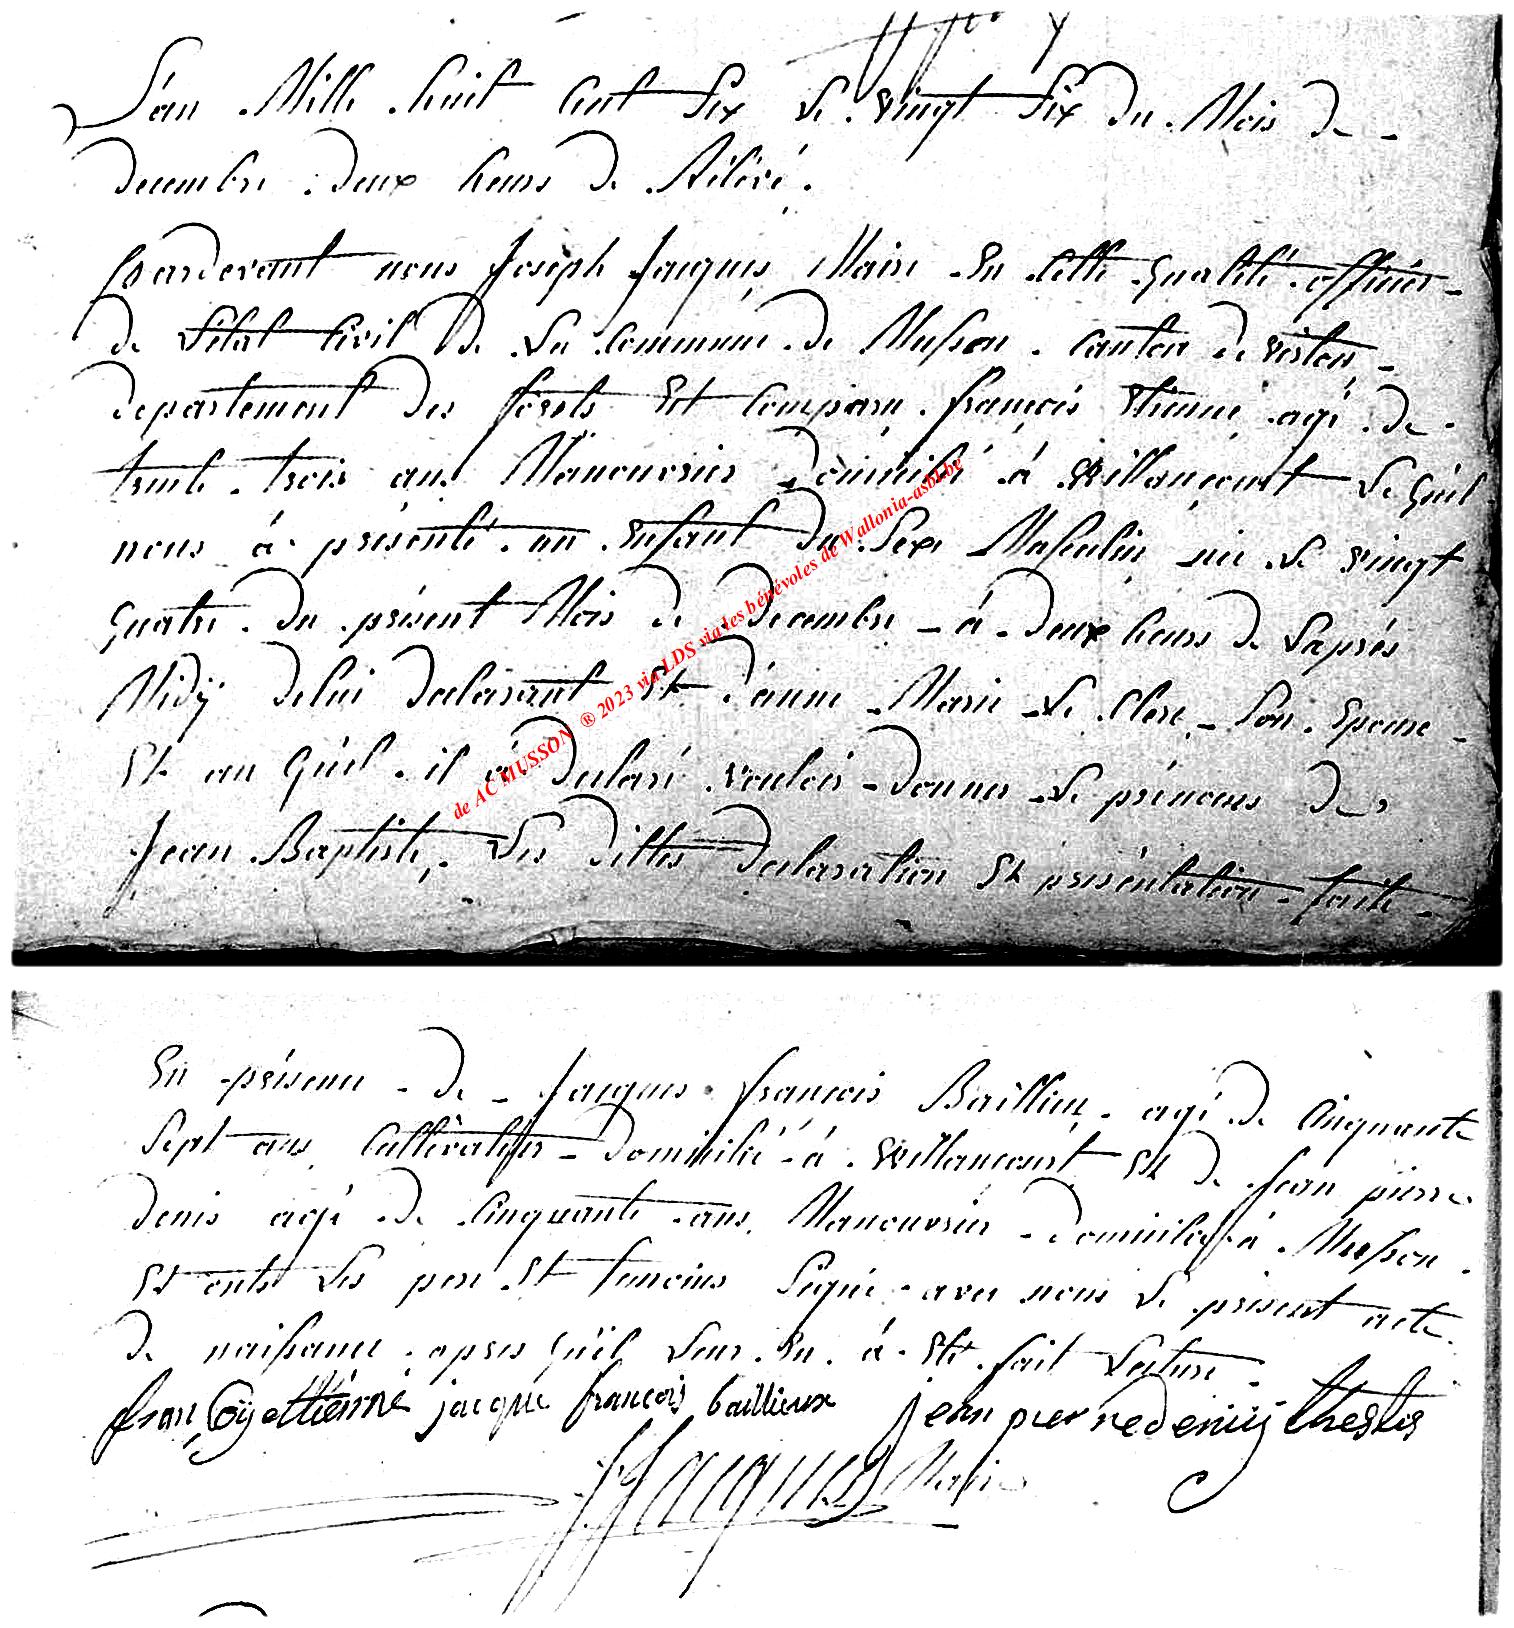 L'an Mille huit Cent six le vingt six du Mois de
decembre deux heurs de Rélévé.
Pardevant nous Joseph Jacques Maire En Cette Qualité officier
de L'état Civil de La Commune de Musson canton de virton
departement des forêts Est Comparu françois Etienne agé de
trente trois ans Manouvrier domicilié à Willancourt Le Quel
nous à présenté un Enfant du Sexe Masculin né Le vingt
Quatre du présent Mois de decembre à deux heurs de L'après
Midÿ delui declarant Et d'anne Marie Le Clere Son Epouse
Et au Quel il à declaré vouloir donner Le prénoms de
Jean Baptiste, Les dittes declaration Et présentation faite
En présence de Jacques françois Baillieux agé de Cinquante
Sept ans Cultivateur domicilié à Willancourt Et de Jean pierre
denis agé de Cinquante ans Manouvrier domicilié à Musson
Et onts Les pere Et temoins Signé avec nous Le présent acte
de naissance apres Quïl Leur En à Eté fait Lecture
francoÿ ettienne jacque françois baillieux jean pierre denis
JJacques Maire
de AC MUSSON ® 2023 via LDS via les bénévoles de Wallonia-asbl.be